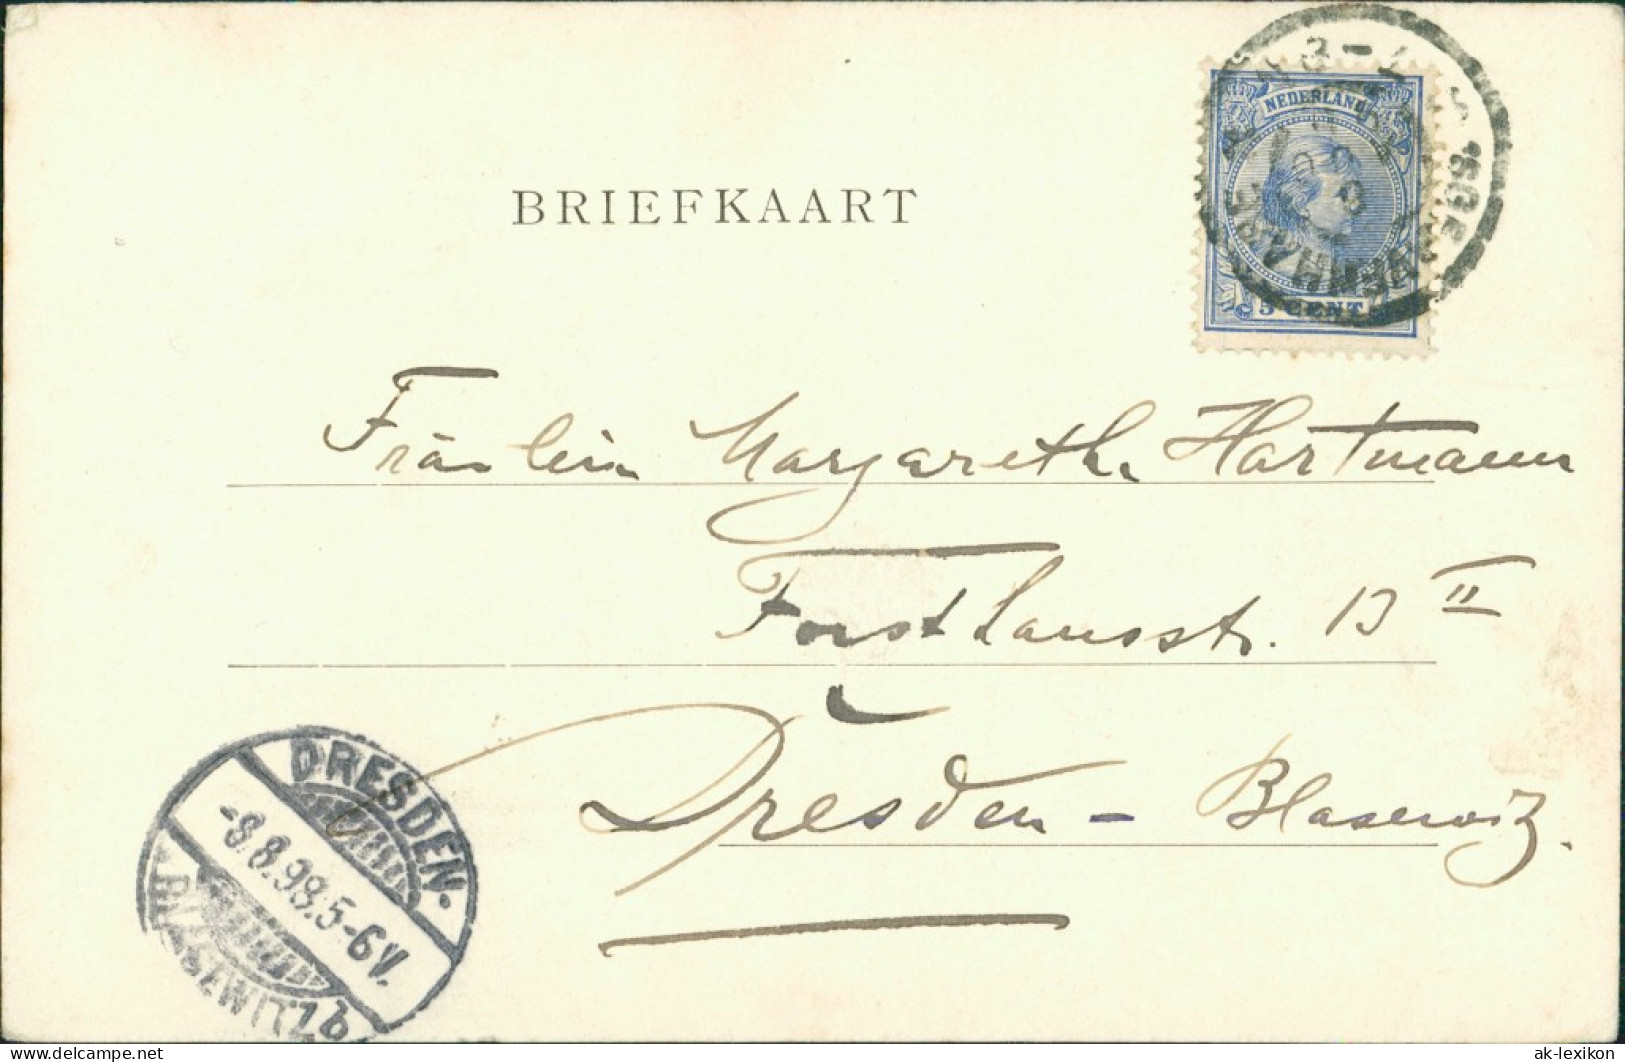 NEDERLAND
5 CENT
BRIEFKAART
Fräulein Margareth Hartmann
Forsthausstr. 13 II
Dresden - Blasewitz.
DRESDEN-
-8.8.98.5-6V.
BLASEWITZ b
delcampe.net
ak-lexikon